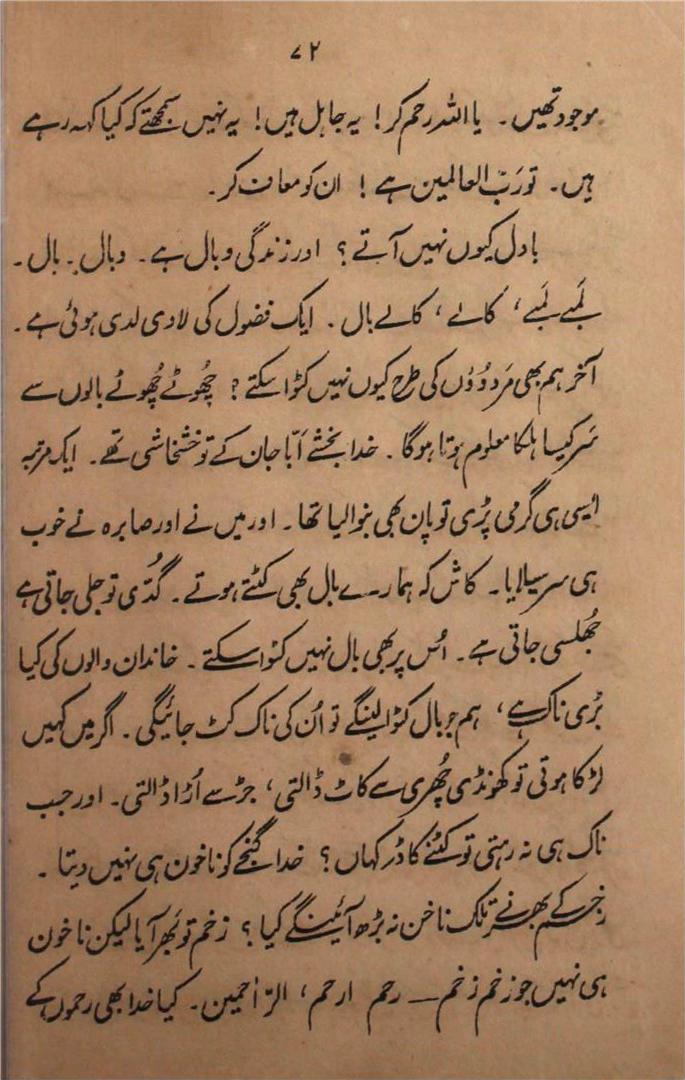 ۷۲
موجود تھیں۔ یا اللہ رحم کر! یہ جاہل ہیں! یہ نہیں سمجھتے کہ کیا کہہ رہے
ہیں۔ تو رَبّ العالمین ہے! ان کو معاف کر۔
بادل کیوں نہیں آتے؟ اور زندگی وبال ہے۔ وبال۔ بال۔
لَمبے لَمبے، کالے، کالے بال۔ ایک فضول کی لادی لدی ہوئی ہے۔
آخر ہم بھی مَردوُوں کی طرح کیوں نہیں کٹوا سکتے؟ چھُوٹے چھُوٹے بالوں سے
سَر کیسا ہلکا معلوم ہوتا ہوگا۔ خدا بخشے اَبّا جان کے تو خشخاشی تھے۔ ایک مرتبہ
ایسی ہی گرمی پڑی تو پان بھی بنوا لیا تھا۔ اور میں نے اور صابرہ نے خوب
ہی سر سہلایا۔ کاش کہ ہمارے بال بھی کٹے ہوتے۔ گُدّی تو جلی جاتی ہے
جھُلسی جاتی ہے۔ اُس پر بھی بال نہیں کٹوا سکتے۔ خاندان والوں کی کیا
بڑی ناک ہے، ہم جو بال کٹوا لینگے تو اُن کی ناک کٹ جائیگی۔ اگر میں کہیں
لڑکا ہوتی تو کھونڈی چھُری سے کاٹ ڈالتی، جڑ سے اُڑا ڈالتی۔ اور جب
ناک ہی نہ رہتی تو کٹنے کا ڈر کہاں؟ خدا گنجے کو ناخون ہی نہیں دیتا۔
زخم کے بھرنے تلک ناخن نہ بڑھ آئینگے کیا؟ زخم تو بھر آیا لیکن ناخون
ہی نہیں جو زخم زخم — رحم ارحم، الرّاحمین۔ کیا خدا بھی رحموں کے